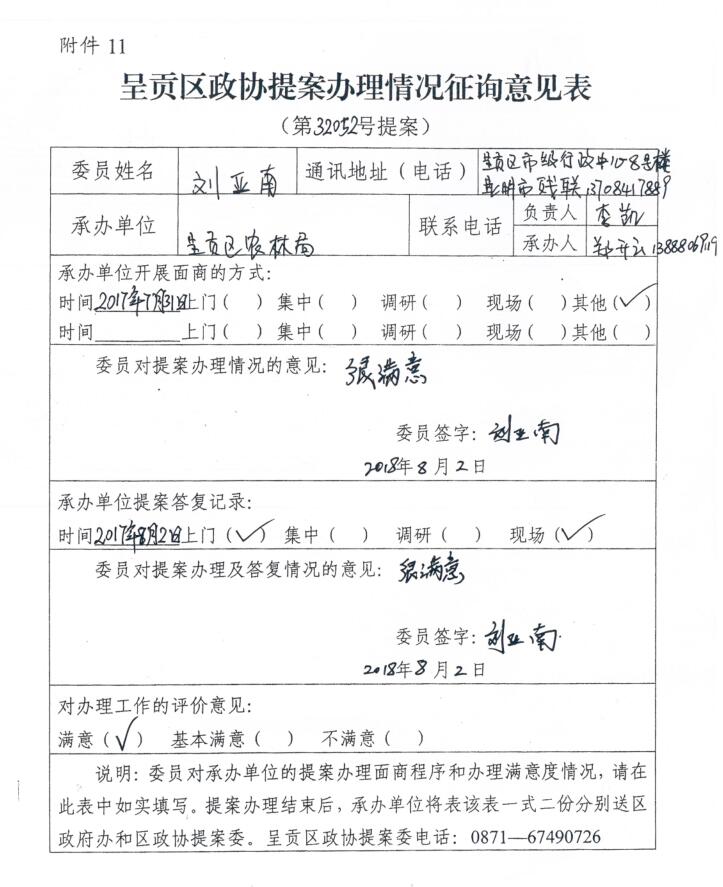 附件 11
呈贡区政协提案办理情况征询意见表
（第32052号提案）
委员姓名 刘亚南 通讯地址（电话） 呈贡区市级行政中心8号楼
昆明市残联13708417889
承办单位 呈贡区农林局 联系电话 负责人 李凯
承办人 郑开云
承办单位开展面商的方式：
时间2017年7月31日上门（ ）集中（ ） 调研（ ） 现场（ ）其他（✓）
时间________上门（ ）集中（ ） 调研（ ） 现场（ ）其他（ ）
委员对提案办理情况的意见：很满意
委员签字：刘亚南
2018年8月2日
承办单位提案答复记录：
时间2017年8月2日上门（✓） 集中（ ） 调研（ ） 现场（✓）
委员对提案办理及答复情况的意见：很满意
委员签字：刘亚南
2018年8月2日
对办理工作的评价意见：
满意（✓） 基本满意（ ） 不满意（ ）
说明：委员对承办单位的提案办理面商程序和办理满意度情况，请在
此表中如实填写。提案办理结束后，承办单位将表该表一式二份分别送区
政府办和区政协提案委。呈贡区政协提案委电话：0871—67490726